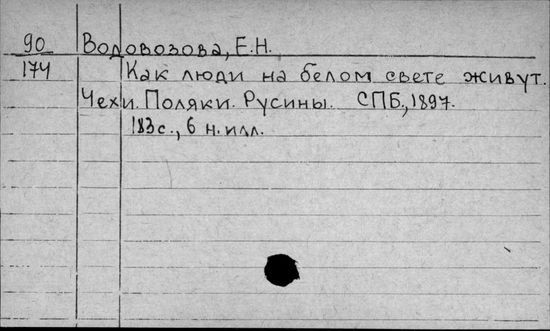 90 Водовозова, Е.Н.
174 Как люди на белом свете живут.
Чехи. Поляки. Русины. СПБ., 1897.
183с., 6 н. илл.